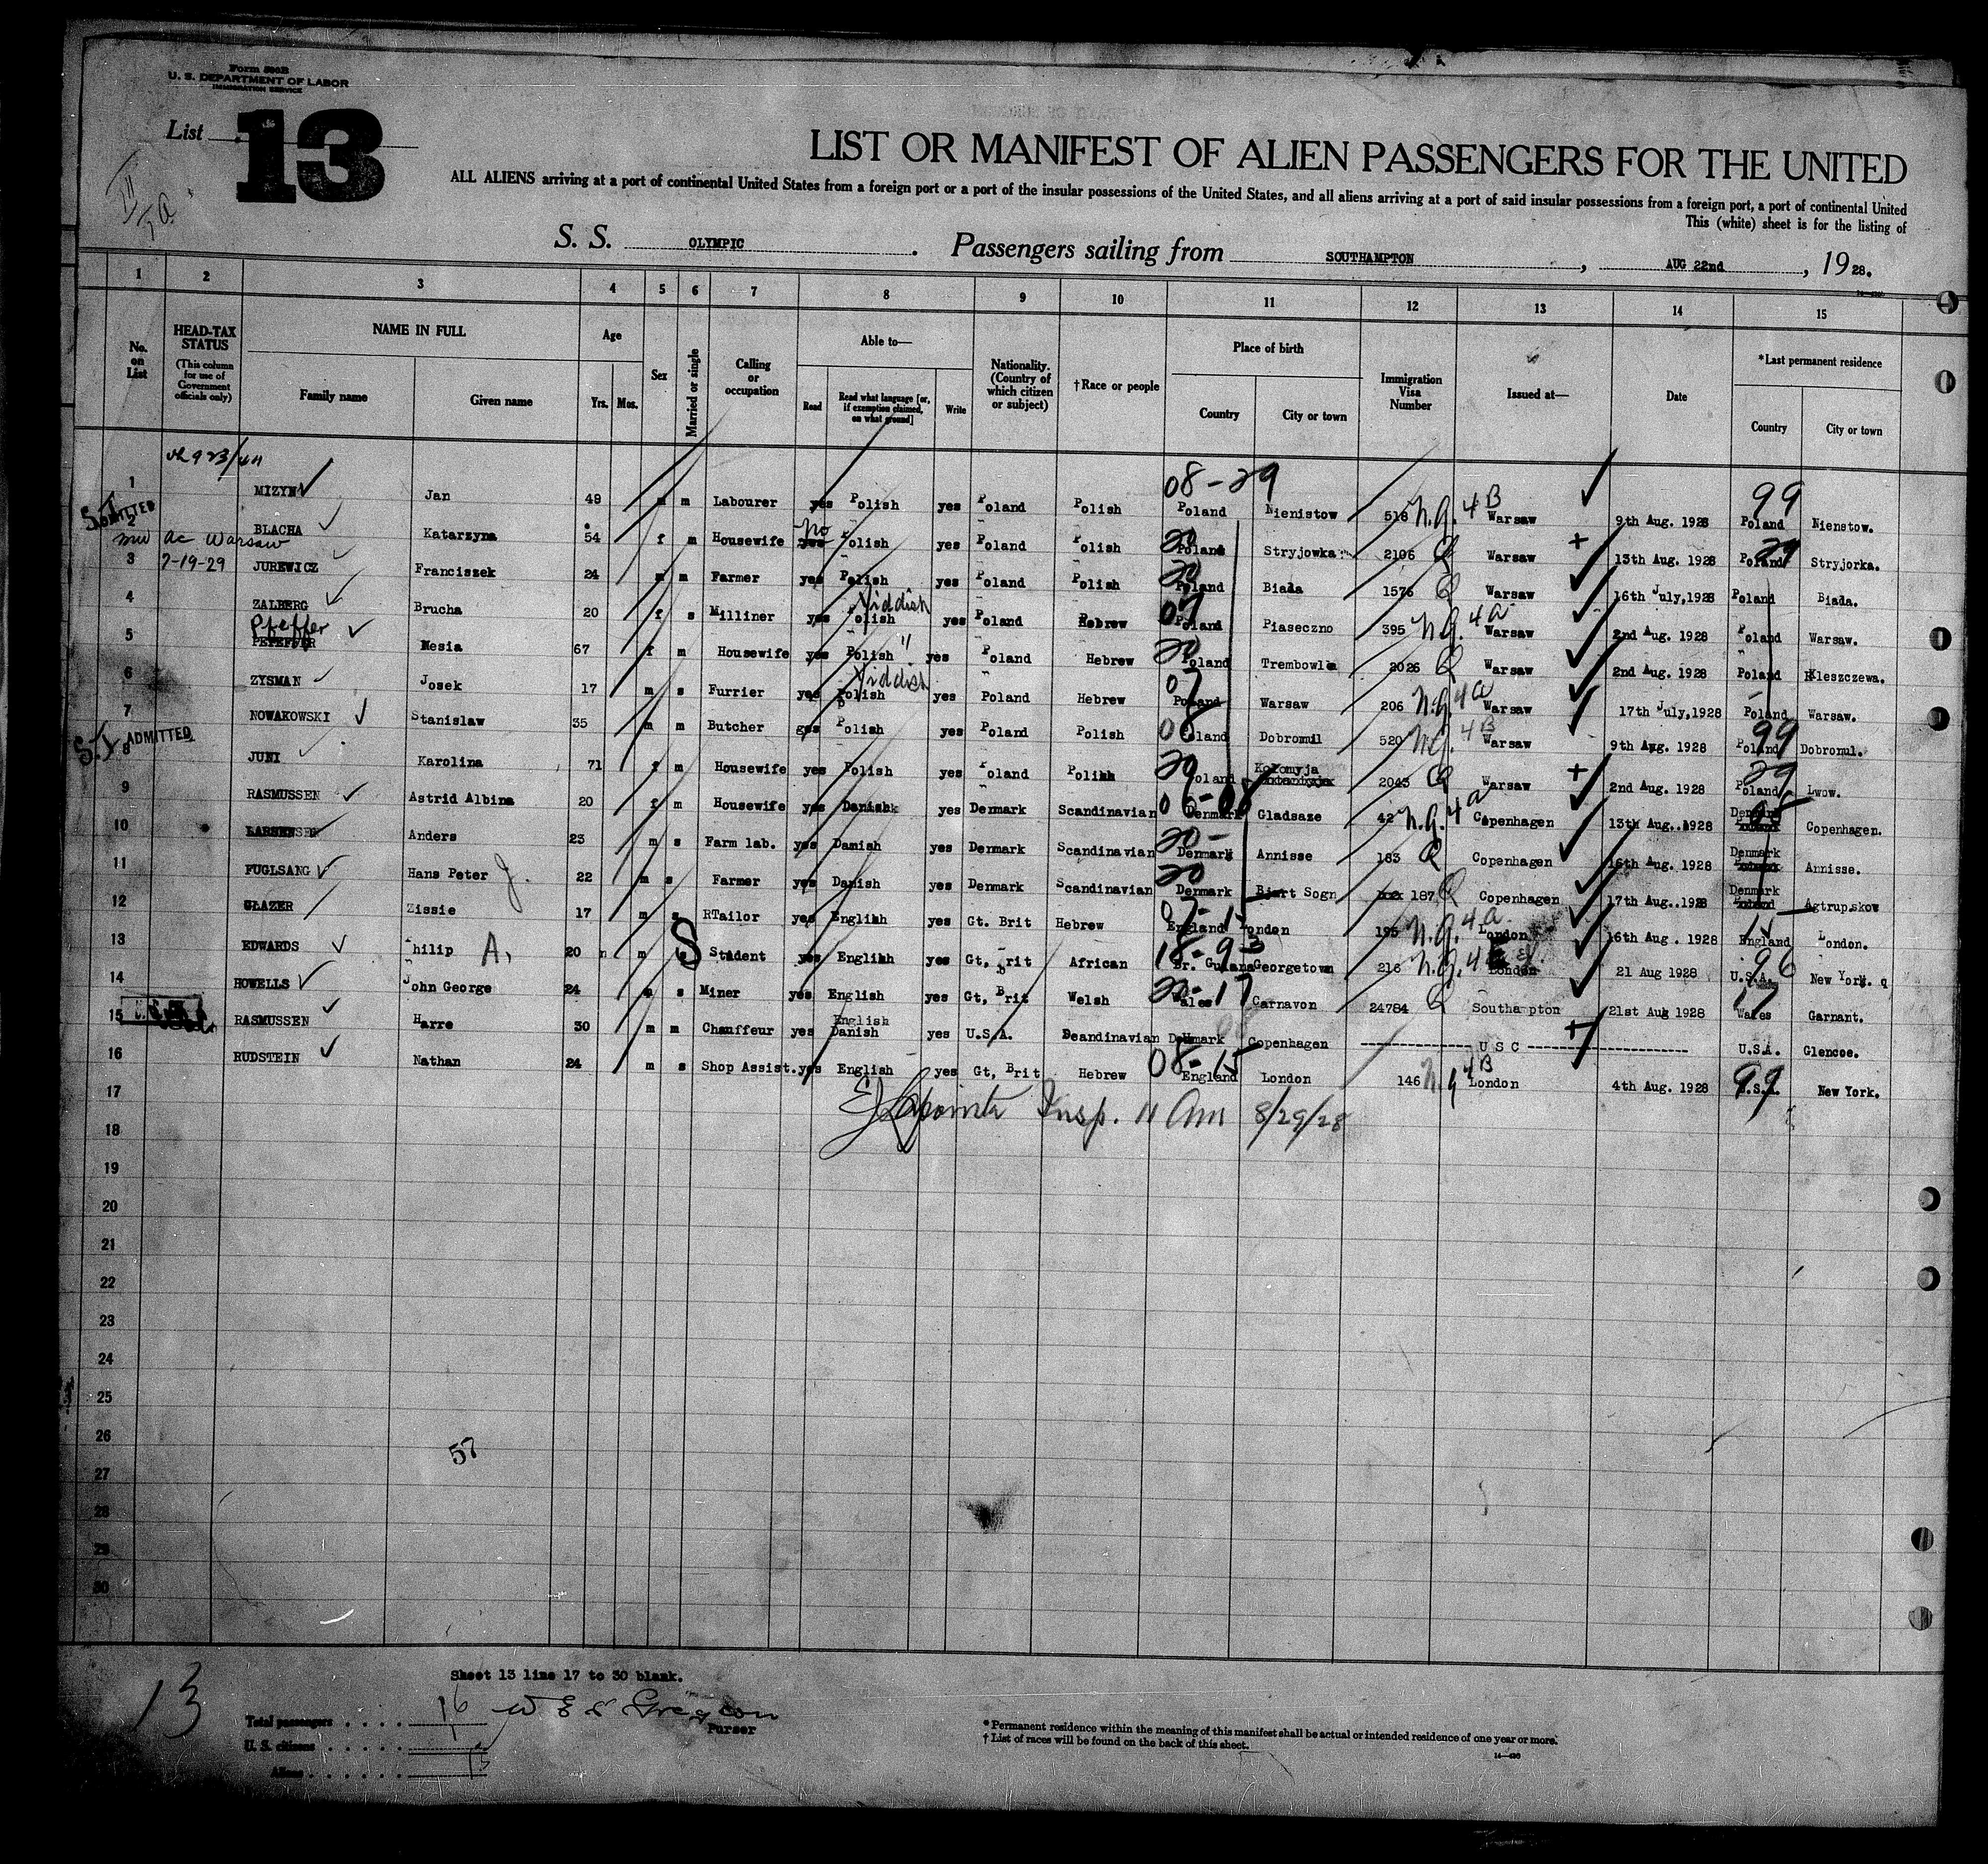 Form 500B
U. S. DEPARTMENT OF LABOR
IMMIGRATION SERVICE
List 13
LIST OR MANIFEST OF ALIEN PASSENGERS FOR THE UNITED
ALL ALIENS arriving at a port of continental United States from a foreign port or a port of the insular possessions of the United States, and all aliens arriving at a port of said insular possessions from a foreign port, a port of continental United
This (white) sheet is for the listing of
S. S. OLYMPIC. Passengers sailing from SOUTHAMPTON, AUG 22nd, 1928.
1 2 3 4 5 6 7 8 9 10 11 12 13 14 15
No. on List
HEAD-TAX STATUS (This column for use of Government officials only)
NAME IN FULL
Family name Given name
Age
Yrs. Mos.
Sex
Married or single
Calling or occupation
Able to—
Read Read what language [or, if exemption claimed, on what ground] Write
Nationality. (Country of which citizen or subject)
†Race or people
Place of birth
Country City or town
Immigration Visa Number
Issued at—
Date
*Last permanent residence
Country City or town
08-29 99
1 MIZYN Jan 49 m m Labourer yes Polish yes Poland Polish Poland Nienistow 518 N.Q. 4B Warsaw 9th Aug. 1928 Poland Nienstow.
S.I. ADMITTED
2 BLACHA Katarzyna 54 f m Housewife no yes Polish yes Poland Polish 20 Poland Stryjowka 2106 Q Warsaw 13th Aug. 1928 Poland 29 Stryjorka.
ac Warsaw
7-19-29
3 JUREWICZ Franciszek 24 m m Farmer yes Polish yes Poland Polish 20 Poland Biada 1576 Q Warsaw 16th July,1928 Poland Biada.
4 ZALBERG Brucha 20 f s Milliner yes Polish Yiddish yes Poland Hebrew 07 Poland Piaseczno 395 N.Q. 4a Warsaw 2nd Aug. 1928 Poland Warsaw.
Pfeffer
5 PEFEFFER Mesia 67 f m Housewife yes Polish " yes Poland Hebrew 20 Poland Trembowla 2026 Q Warsaw 2nd Aug. 1928 Poland Kleszczewa.
6 ZYSMAN Josek 17 m s Furrier yes Polish Yiddish yes Poland Hebrew 07 Poland Warsaw 206 N.Q. 4a Warsaw 17th July,1928 Poland Warsaw.
7 NOWAKOWSKI Stanislaw 35 m m Butcher yes Polish yes Poland Polish 08 Poland Dobromil 520 N.Q. 4B Warsaw 9th Aug. 1928 Poland 99 Dobromul.
S.I. ADMITTED
8 JUNI Karolina 71 f m Housewife yes Polish yes Poland Polihh 20 Poland Kolomyja 2043 Q Warsaw 2nd Aug. 1928 Poland 29 Lwow.
9 RASMUSSEN Astrid Albina 20 f m Housewife yes Danishk yes Denmark Scandinavian 06-08 Denmark Gladsaze 42 N.Q. 4a Copenhagen 13th Aug..1928 Denmark Copenhagen.
10 LARSEN Anders 23 m s Farm lab. yes Danish yes Denmark Scandinavian 20- Denmark Annisse 183 Q Copenhagen 16th Aug. 1928 Denmark Annisse.
11 FUGLSANG Hans Peter J. 22 m s Farmer yes Danish yes Denmark Scandinavian 20 Denmark Bjart Sogn 187 Q Copenhagen 17th Aug..1928 Denmark Agtrup.skow
12 GLAZER Zissie 17 m s RTailor yes Englihh yes Gt. Brit Hebrew 07-15 England London 195 N.Q. 4a London 16th Aug . 1928 England London.
13 EDWARDS Philip A. 20 m S Student yes Englihh yes Gt, Brit African 18-93 Br. Guiana Georgetown 216 N.Q. 4E London 21 Aug 1928 U.S.A. 96 New York.
14 HOWELLS John George 24 m s Miner yes English yes Gt, Brit Welsh 20-17 Wales Carnavon 24784 Q Southampton 21st Aug 1928 Wales 17 Garnant.
15 RASMUSSEN Harre 30 m m Chauffeur yes English Danish yes U.S.A. Scandinavian Denmark Copenhagen U S C U.S.A. Glencoe.
16 RUDSTEIN Nathan 24 m s Shop Assist. yes English yes Gt, Brit Hebrew 08-15 England London 146 N.Q. 4B London 4th Aug. 1928 U.S.A. 99 New York.
17 Insp. 11 Am 8/29/28
18
19
20
21
22
23
24
25
26
57
27
28
29
30
Sheet 13 line 17 to 30 blank.
13
Total passengers . . . . 16
Purser
U. S. citizens . . . . . 1
Aliens . . . . . . 15
* Permanent residence within the meaning of this manifest shall be actual or intended residence of one year or more.
† List of races will be found on the back of this sheet.